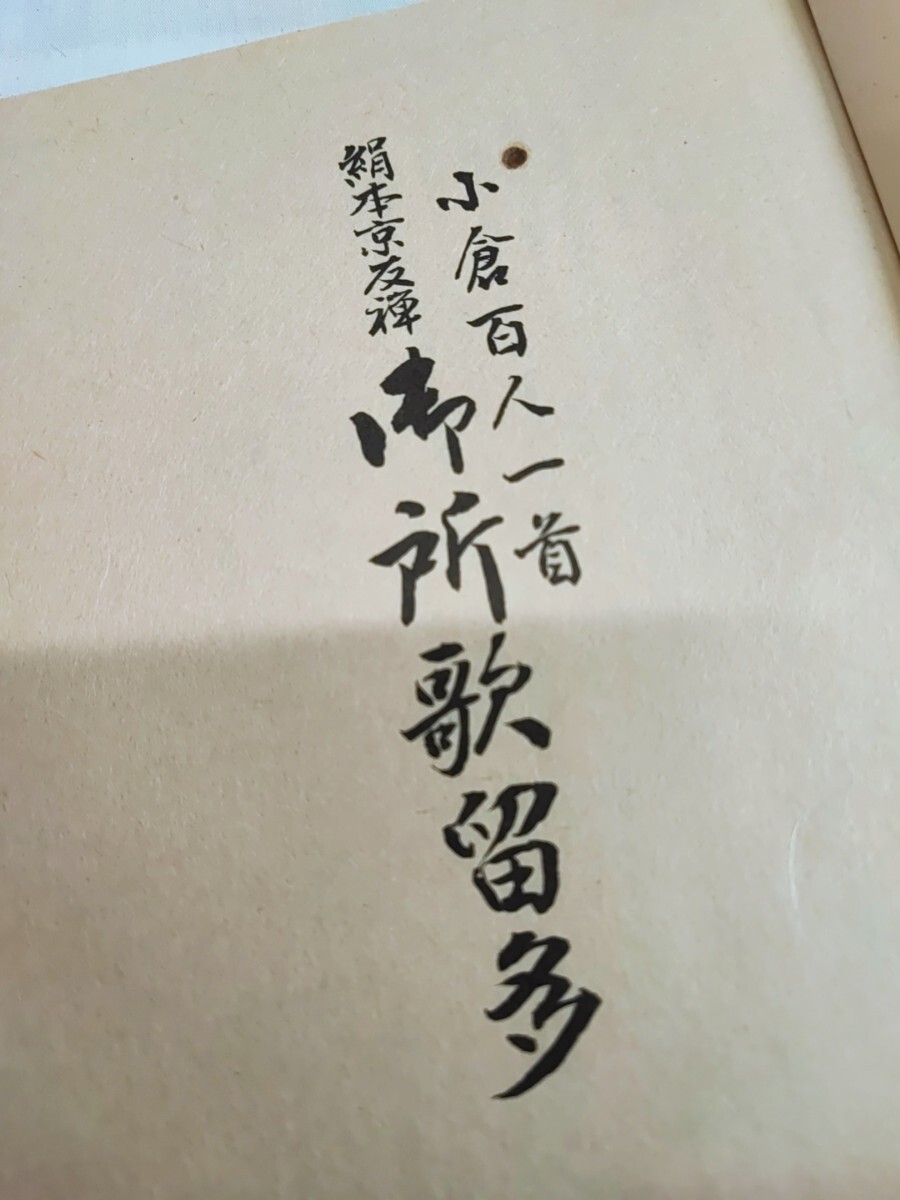 小倉百人一首
絹本京友禅
御所歌留多